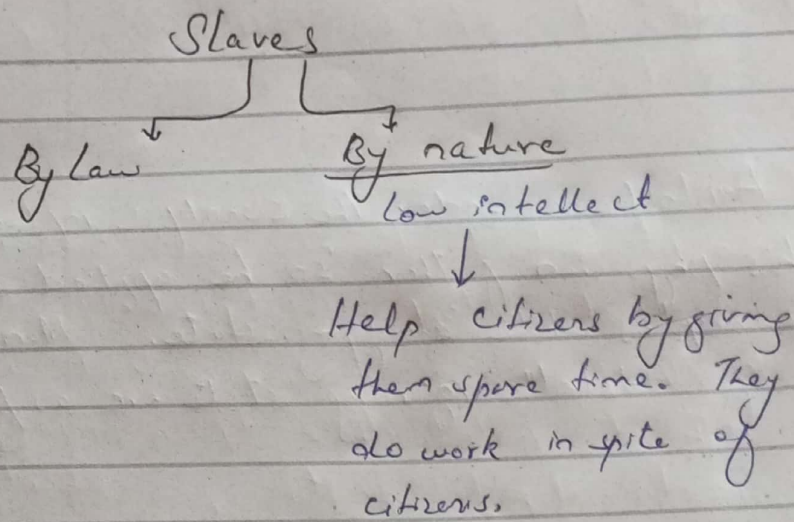 Slaves
By law
By nature
low intellect
Help citizens by giving
them spare time. They
do work in spite of
citizens.